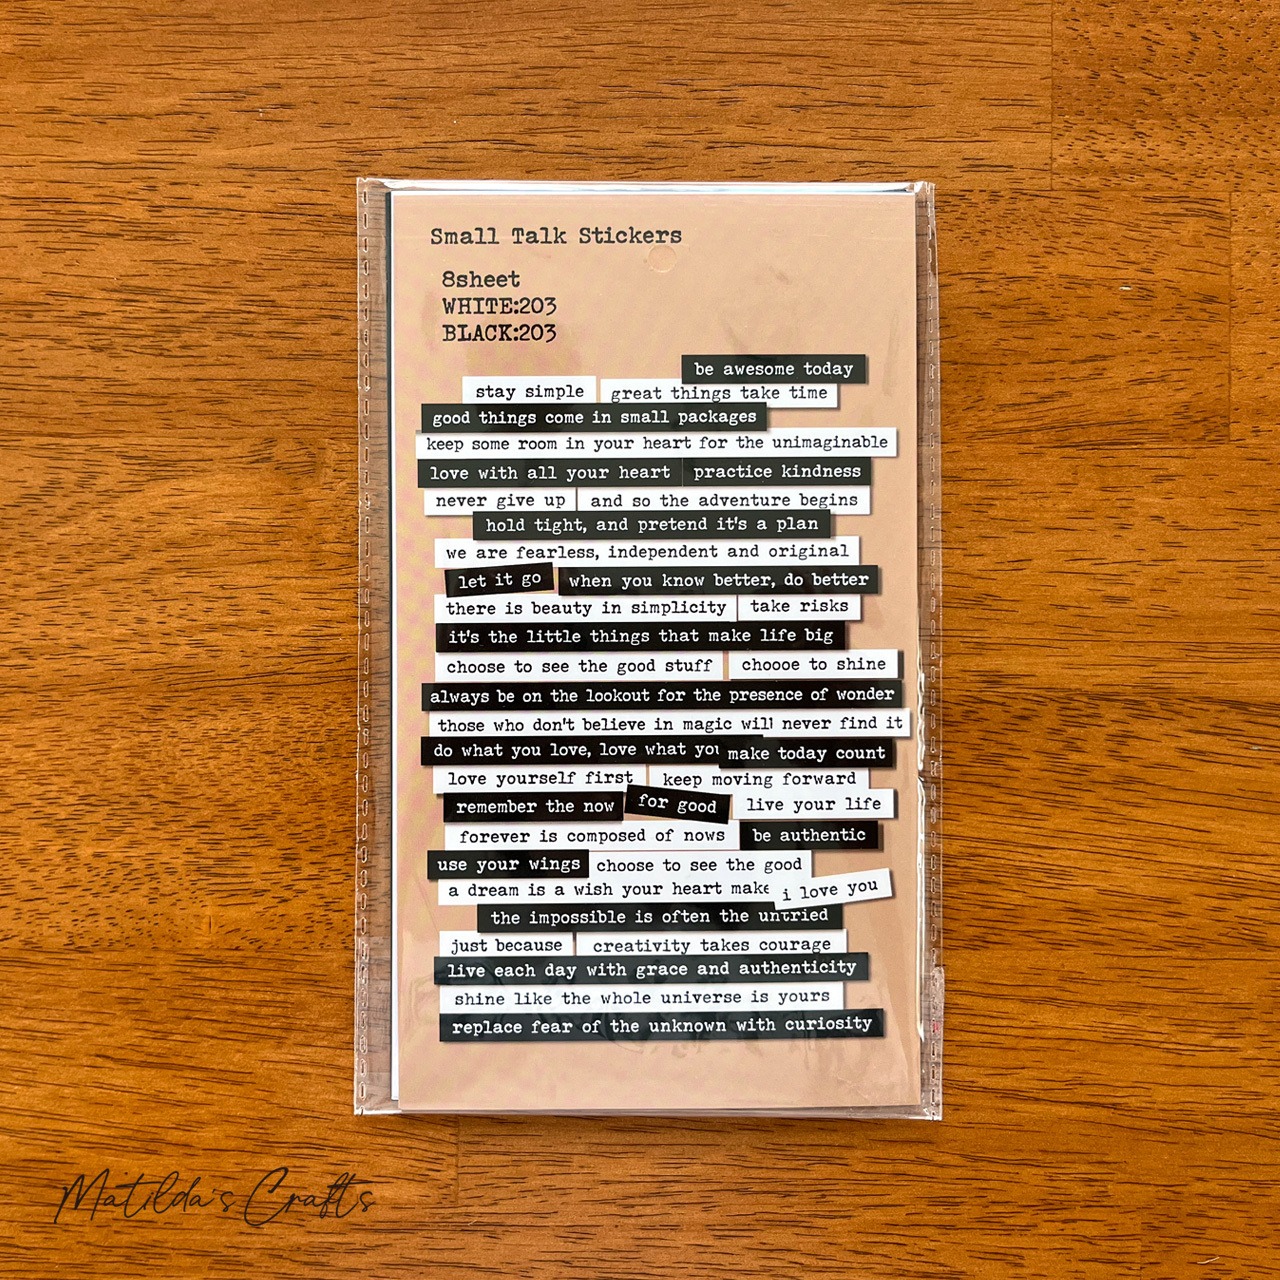 Small Talk Stickers
8sheet
WHITE:203
BLACK:203
be awesome today
stay simple great things take time
good things come in small packages
keep some room in your heart for the unimaginable
love with all your heart practice kindness
never give up and so the adventure begins
hold tight, and pretend it's a plan
we are fearless, independent and original
let it go when you know better, do better
there is beauty in simplicity take risks
it's the little things that make life big
choose to see the good stuff choooe to shine
always be on the lookout for the presence of wonder
those who don't believe in magic will never find it
do what you love, love what you make today count
love yourself first keep moving forward
remember the now for good live your life
forever is composed of nows be authentic
use your wings choose to see the good
a dream is a wish your heart make i love you
the impossible is often the untried
just because creativity takes courage
live each day with grace and authenticity
shine like the whole universe is yours
replace fear of the unknown with curiosity
Matilda's Crafts